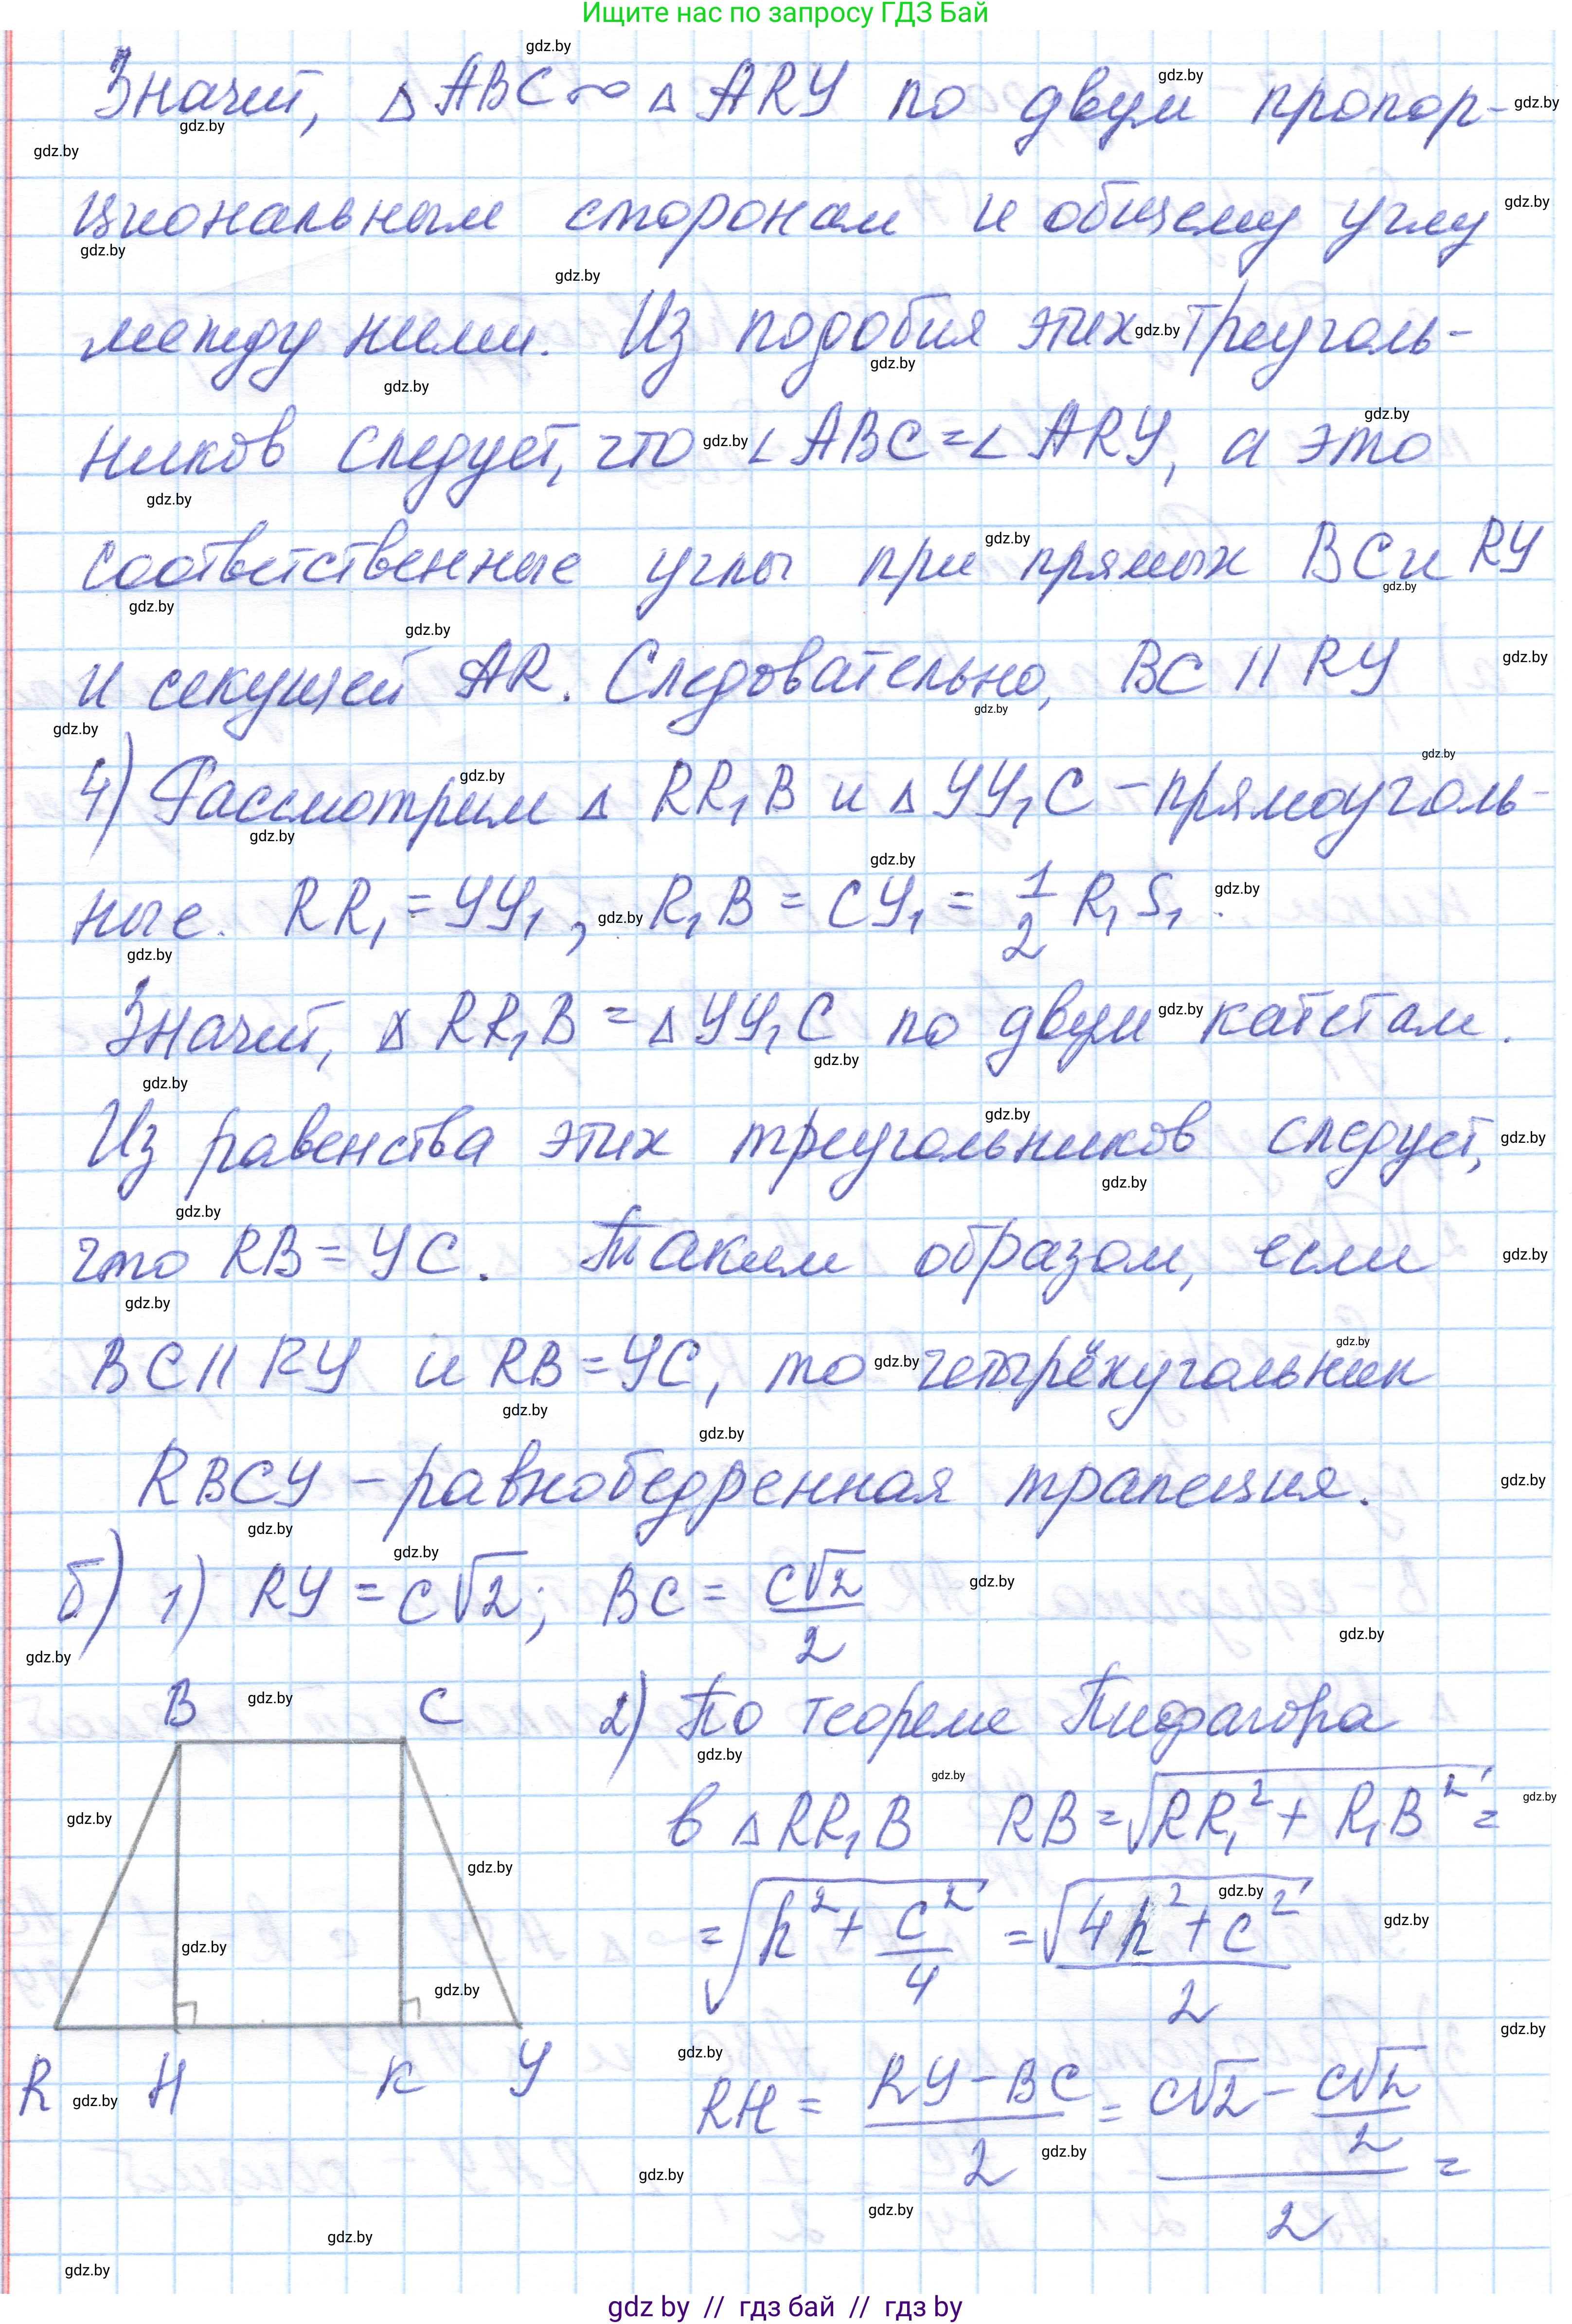 Ищите нас по запросу ГДЗ Бай
Значит, △ABC ∾ △ARY по двум пропор-
циональным сторонам и общему углу
между ними. Из подобия этих треуголь-
ников следует, что ∠ABC = ∠ARY, а это
соответственные углы при прямых BC и RY
и секущей AR. Следовательно, BC || RY
4) Рассмотрим △ RR₁B и △YY₁C – прямоуголь-
ные. RR₁ = YY₁, R₁B = CY₁ = 1/2 R₁S₁.
Значит, △ RR₁B = △YY₁C по двум катетам.
Из равенства этих треугольников следует,
что RB = YC. Таким образом, если
BC || RY и RB = YC, то четырёхугольник
RBCY – равнобедренная трапеция.
б) 1) RY = c√2; BC = c√2/2
B C
2) По теореме Пифагора
в △RR₁B RB = √(RR₁² + R₁B²) =
= √(h² + c²/4) = √(4h² + c²)/2
R H K Y
RH = (RY – BC)/2 = (c√2 – c√2/2)/2 =
gdz by // гдз бай // гдз by